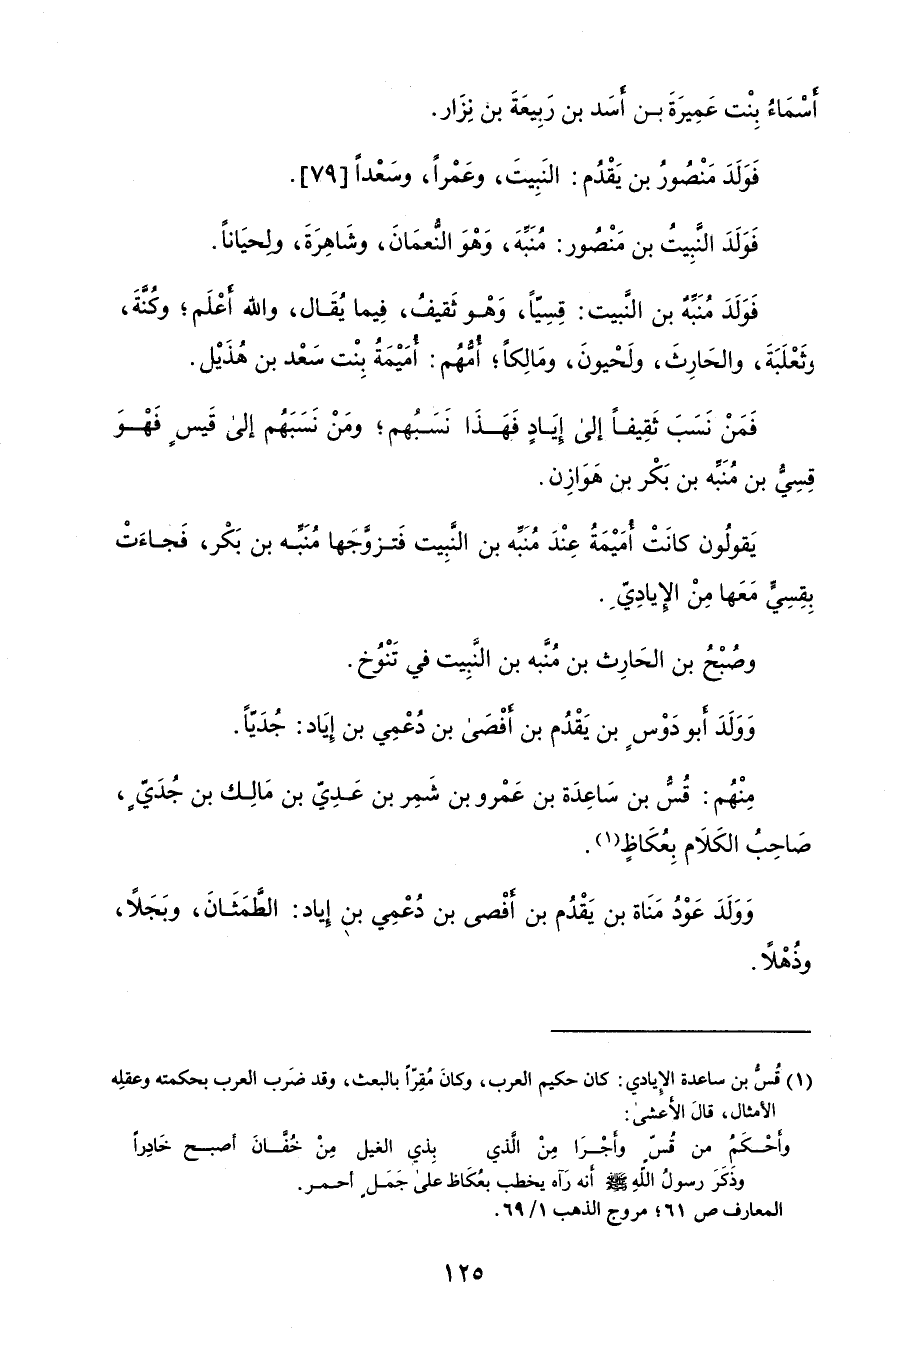 أَسْمَاءُ بِنْت عَمِيرَةَ بـن أَسَد بن رَبِيعَةَ بن نِزَار.
فَوَلَدَ مَنْصُورُ بن يَقْدُم: النَبِيتَ، وعَمْراً، وسَعْداً [٧٩].
فَوَلَدَ النَّبِيتُ بن مَنْصُور: مُنَبِّه، وَهْوَ النُّعمَانَ، وشَاهِرَةَ، ولِحيَاناً.
فَوَلَدَ مُنَبِّهٌ بن النَّبيت: قِسِيّاً، وَهْـو ثَقيفُ، فِيما يُقَـال، والله أَعْلَم؛ وكُنَّةَ،
وثَعْلَبَةَ، والحَارِثَ، ولَحْيونَ، ومَالِكاً؛ أُمُّهُم: أُمَيْمَةُ بِنْت سَعْد بن هُذَيْل.
فَمَنْ نَسَبَ ثَقِيفـاً إلىٰ إِيَـادٍ فَهَـذَا نَسَـبُهم؛ ومَنْ نَسَبَهُم إلىٰ قَيسٍ فَهْـوَ
قِسِيُّ بن مُنَبِّه بن بَكْر بن هَوَازِن.
يَقولُون كانَتْ أُمَيْمَةُ عِنْدَ مُنَبِّه بن النَّبِيت فَتـزوَّجَها مُنَبِّـه بن بَكْر، فَجـاءَتْ
بِقِسِيٍّ مَعَها مِنْ الإيادِيِّ.
وصُبْحُ بن الحَارِث بن مُنَّبه بن النَّبِيت في تَنْوُخ.
وَوَلَدَ أَبو دَوْسٍ بن يَقْدُم بن أَفْصَىٰ بن دُعْمِي بن إِيَاد: جُدَيّاً.
مِنْهُم: قُسُّ بن سَاعِدَة بن عَمْرو بن شَمِر بن عَـدِيّ بن مَالِـك بن جُدَيٍّ،
صَاحِبُ الكَلَام بِعُكَاظٍ(١).
وَوَلَدَ عَوْدُ مَنَاة بن يَقْدُم بن أَفْصى بن دُعْمِي بن إياد: الطَّمَثَـان، وبَجَلًا،
وذُهْلًا.
(١) قُسُّ بن ساعدة الإيادي: كان حكيم العرب، وكانَ مُقِرّاً بالبعث، وقد ضَرب العرب بحكمته وعقلِه
الأمثال، قالَ الأعشىٰ:
وأَحْـكَمُ من قُسٍّ وأَجْـرَا مِنْ الَّذي بِذي الغيل مِنْ خُفَّـانَ أصبـح خَادِراً
وذَكَرَ رسولُ اللَّهِ ﷺ أنه رَآه يخطب بعُكَاظ علىٰ جَمَلٍ أحمـر.
المعارف ص ٦١؛ مروج الذهب ١/ ٦٩.
١٢٥